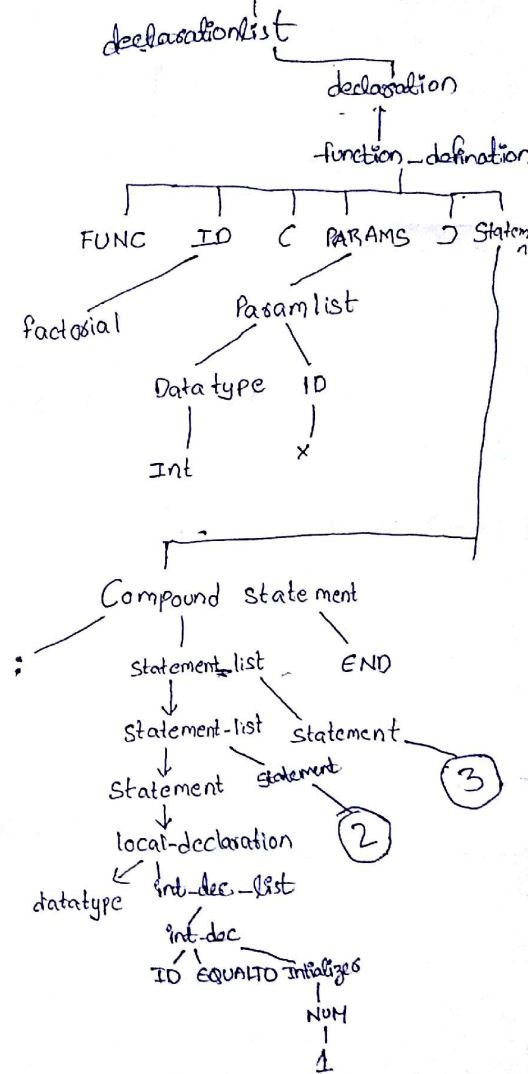 declarationlist
declaration
function_defination
FUNC ID ( PARAMS ) Statem
n
factorial
Paramlist
Datatype ID
Int
x
Compound statement
: Statement_list END
Statement-list Statement
Statement Statement 3
2
local-declaration
datatype int_dec_list
int-dec
ID EQUALTO Intializer
NUM
1